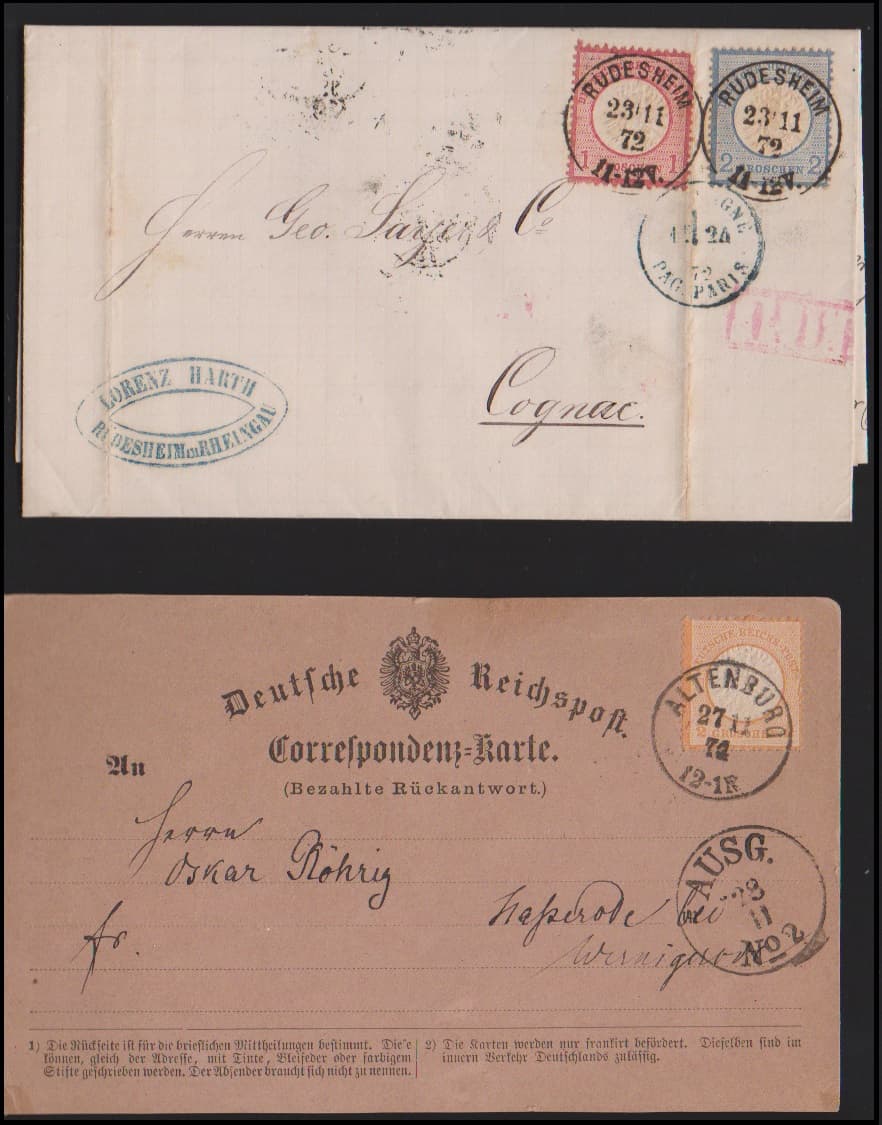 RÜDESHEIM
23 11
72
11-12V.
1 GROSCHEN 1
RÜDESHEIM
23 11
72
11-12V.
2 GROSCHEN 2
24
72
PAG. PARIS
Herren Geo. Sayer & Co
P.D.
LORENZ HARTH
RÜDESHEIM im RHEINGAU
Cognac.
Deutſche Reichspoſt.
Correſpondenz-Karte.
(Bezahlte Rückantwort.)
An
DEUTSCHE REICHS-POST
ALTENBURG
27 11
72
12-1N
Herrn
Oskar Röhrig
fr.
Hasserode bei
Wernigerode
AUSG.
28
11
No 2
1) Die Rückſeite iſt für die brieflichen Mittheilungen beſtimmt. Dieſe
können, gleich der Adreſſe, mit Tinte, Bleifeder oder farbigem
Stifte geſchrieben werden. Der Abſender braucht ſich nicht zu nennen.
2) Die Karten werden nur frankirt befördert. Dieſelben ſind im
innern Verkehr Deutſchlands zuläſſig.